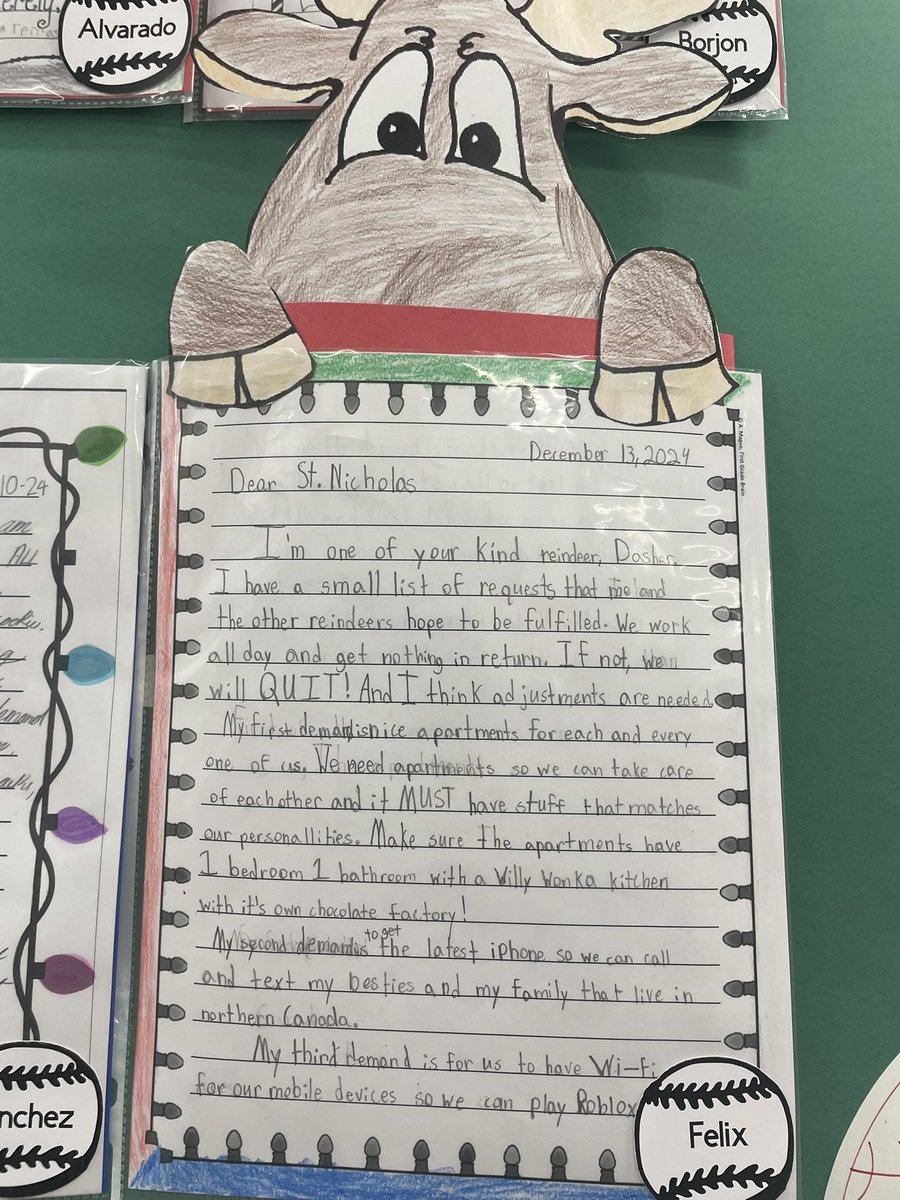 Alvarado
Borjon
© A. Magee, First Grade Brain
December 13, 2024
Dear St. Nicholas
I'm one of your kind reindeer, Dasher.
I have a small list of requests that me and
the other reindeers hope to be fulfilled. We work
all day and get nothing in return. If not, we
will QUIT! And I think adjustments are needed.
My first demand is nice apartments for each and every
one of us. We need apartments so we can take care
of eachother and it MUST have stuff that matches
our personallities. Make sure the apartments have
1 bedroom 1 bathroom with a Willy Wonka kitchen
with it's own chocolate factory!
My second demand is to get the latest iPhone so we can call
and text my besties and my family that live in
northern Canada.
My third demand is for us to have Wi-fi
for our mobile devices so we can play Roblox
Felix
10-24
am
All
nchez